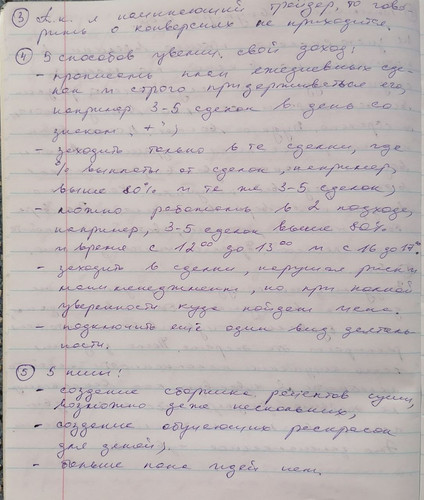 ③ Т.к. я начинающий трейдер, то гово-
рить о конверсиях не приходится.
④ 5 способов увелич. свой доход:
- прописать план ежедневных сде-
лок и строго придерживаться его,
например 3-5 сделок в день со
знаком "+";
- заходить только в те сделки, где
% выплаты от сделок, например,
выше 80% и те же 3-5 сделок;
- можно работать в 2 подхода,
например, 3-5 сделок выше 80%
и время с 12⁰⁰ до 13⁰⁰ и с 16 до 17⁰⁰
- заходить в сделки, нарушая риски
мани менеджмента, но при полной
уверенности куда пойдет цена.
- подключить ещё один вид деятель-
ности.
⑤ 5 ниш!
- создание сборника рецептов суши,
возможно даже нескольких;
- создание обучающих раскрасок
для детей).
- больше пока идей нет.